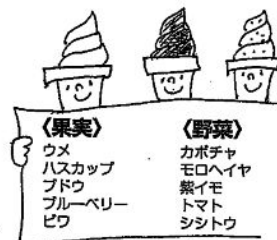 〈果実〉
ウメ
ハスカップ
ブドウ
ブルーベリー
ビワ
〈野菜〉
カボチャ
モロヘイヤ
紫イモ
トマト
シシトウ